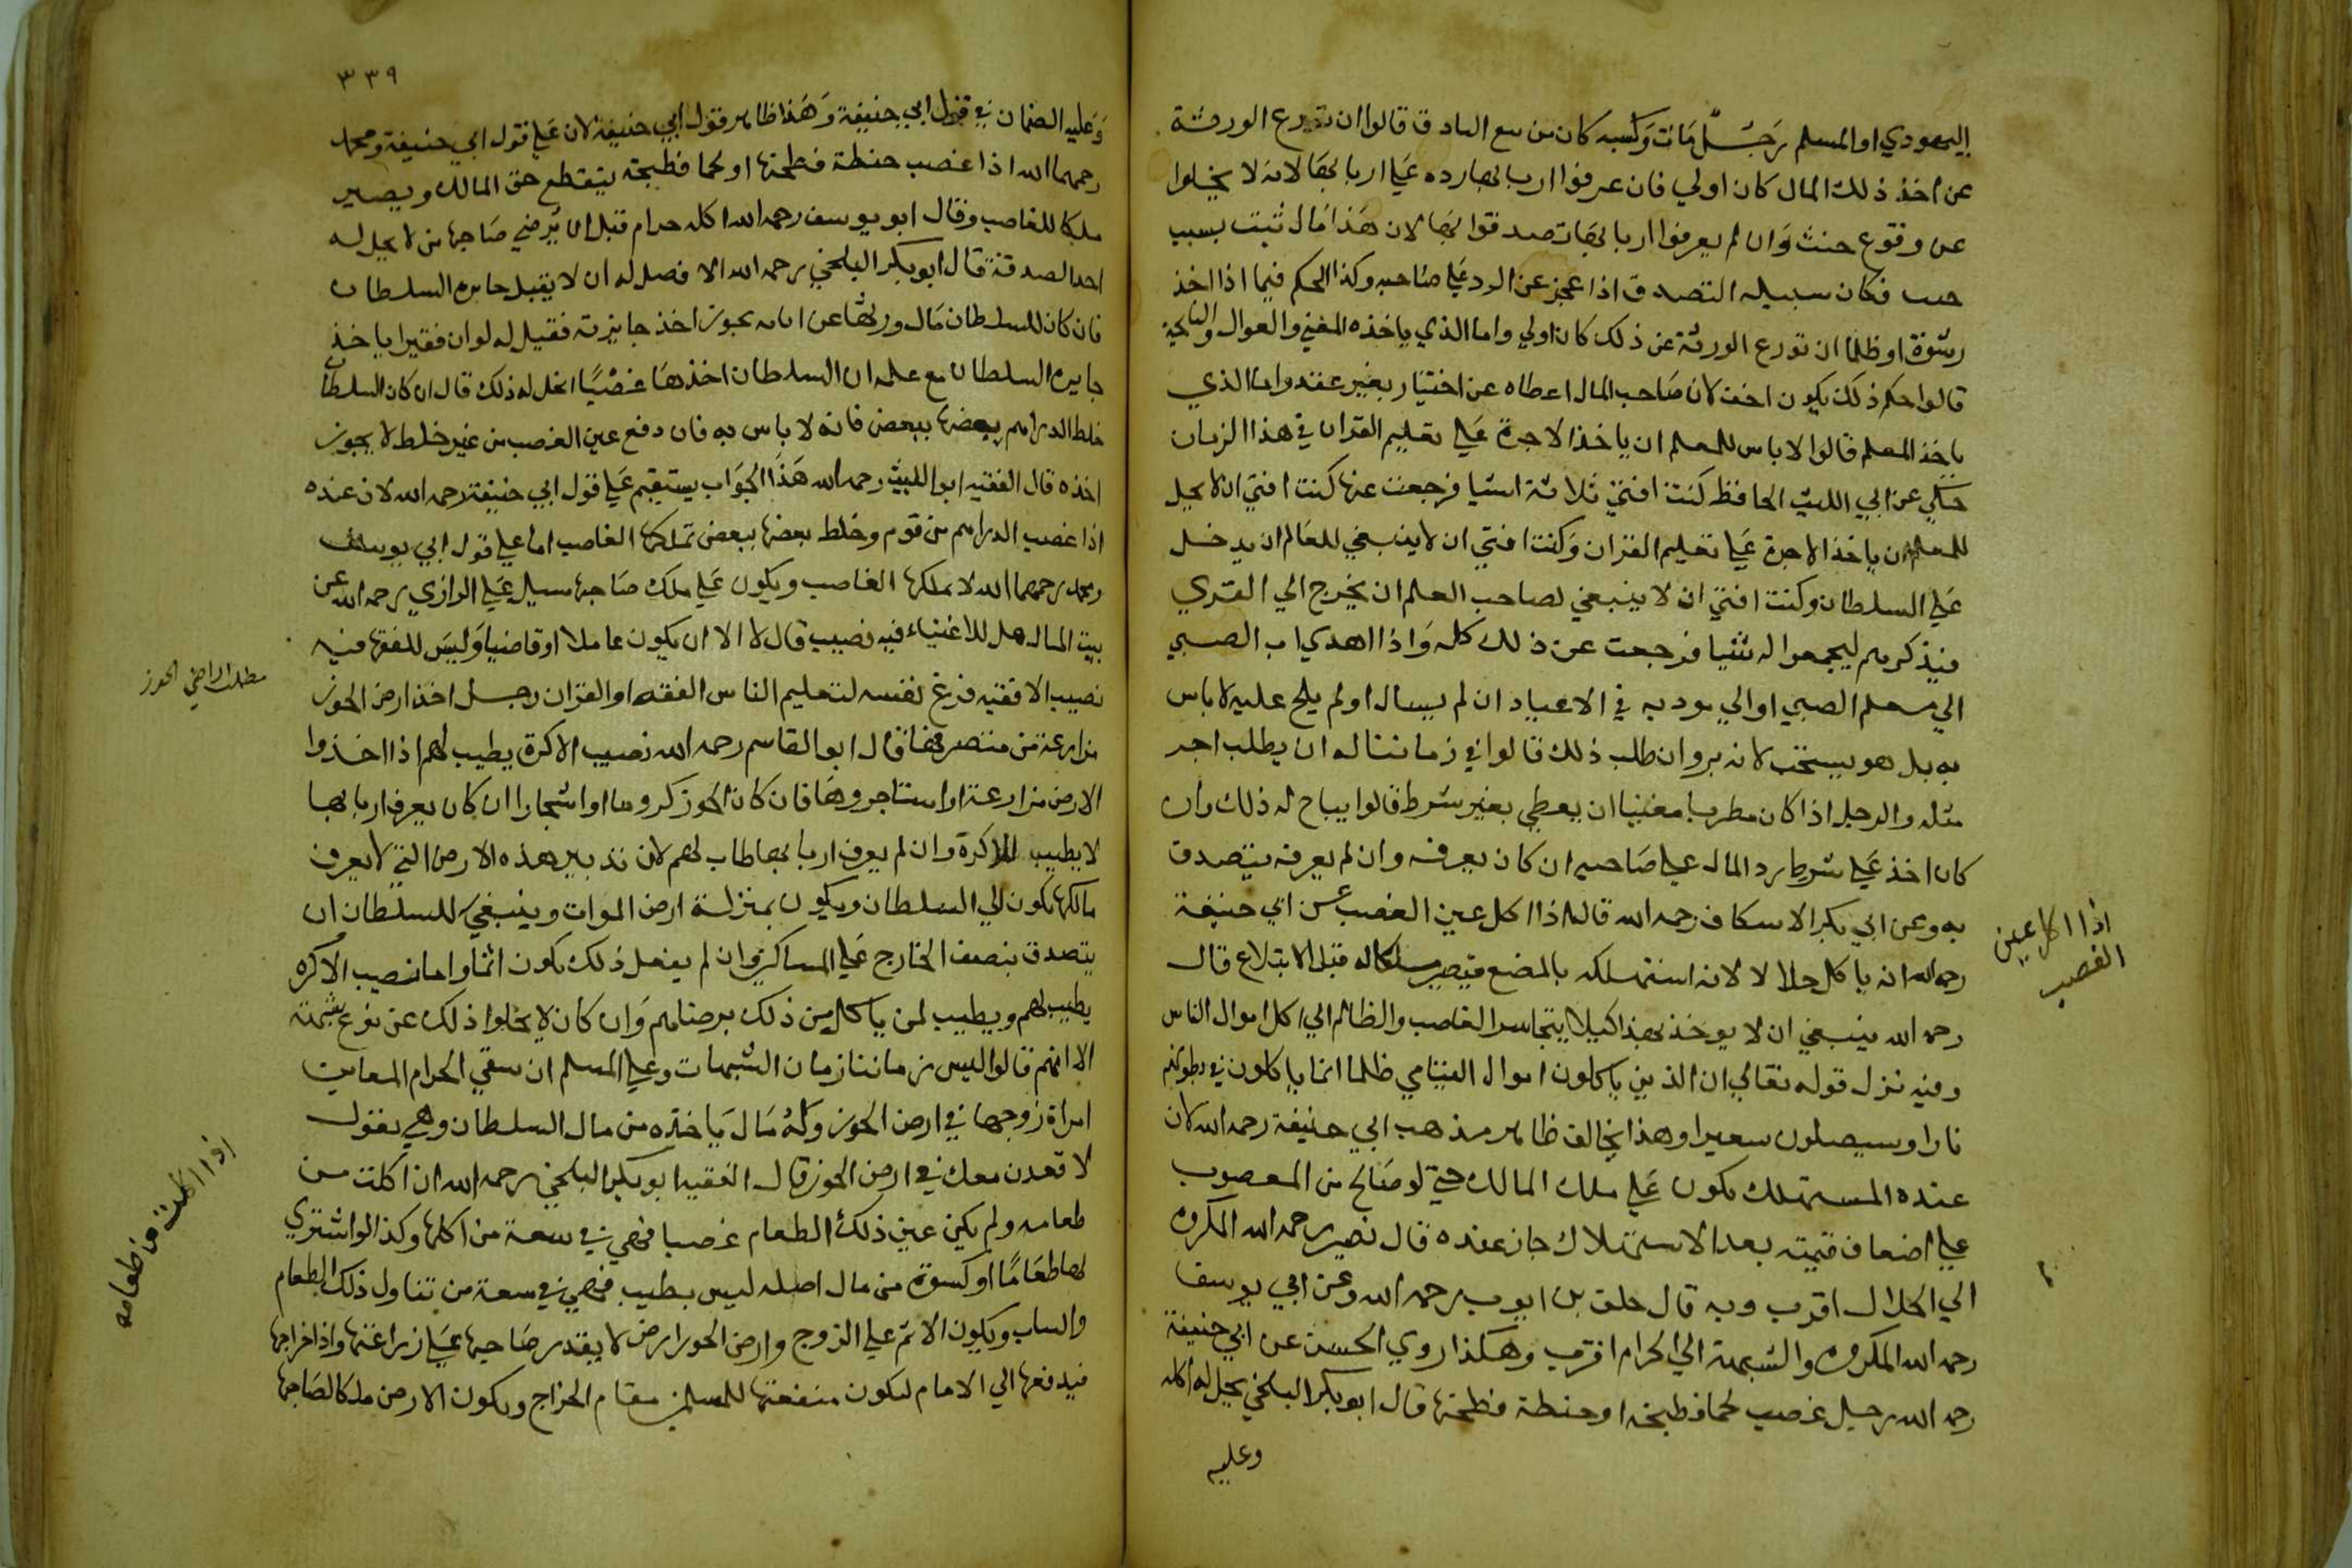 اليهودي او المسلم رجل مات وكسبه كان من بيع الباذق قالوا ان تورع الورثة
عن اخذ ذلك المال كان اولي فان عرفوا اربابها رده علي اربابها لانه لا يخلوا
عن وقوع خبث وان لم يعرفوا اربابها تصدقوا بها لان هذا مال ثبت بسبب
خبيث فكان سبيله التصدق اذا عجز عن الرد علي صاحبه وكذا الحكم فيما اذا اخذ
رشوة او ظلما ان تورع الورثة عن ذلك كان اولي واما الذي ياخذه المغني والقوال والنائحة
قالوا حكم ذلك يكون اخف لان صاحب المال اعطاه عن اختيار بغير عقد واما الذي
ياخذ المعلم قالوا لا باس للمعلم ان ياخذ الاجرة علي تعليم القران في هذا الزمان
حكي عن ابي الليث الحافظ كنت افتي ثلاثة اشيا فرجعت عنها كنت افتي ان لا يحل
للمعلم ان ياخذ الاجرة علي تعليم القران وكنت افتي ان لا ينبغي للعالم ان يدخل
علي السلطان وكنت افتي ان لا ينبغي لصاحب العلم ان يخرج الي القري
فيذكرهم ليجمعوا له شيا فرجعت عن ذلك كله واذا اهدي اب الصبي
الي معلم الصبي او الي مودبه في الاعياد ان لم يسال او لم يلح عليه لا باس
به بل هو يستحب لانه بر وان طلب ذلك قالوا في زماننا له ان يطلب اجر
مثله والرجل اذا كان مطربا مغنيا ان يعطي بغير شرط قالوا يباح له ذلك وان
كان اخذ علي شرط رد المال علي صاحبه ان كان يعرفه وان لم يعرفه يتصدق
به وعن ابي بكر الاسكاف رحمه الله قال اذا اكل عين الغصب عن ابي حنيفة
رحمه الله انه ياكل حلالا لانه استهلكه بالمضغ فيصير ملكا له قبل الابتلاع قال
رحمه الله ينبغي ان لا يوخذ بهذا كيلا يتجاسر الغاصب والظالم الي اكل اموال الناس
وفيه نزل قوله تعالي ان الذين ياكلون اموال اليتامي ظلما انما ياكلون في بطونهم
نارا وسيصلون سعيرا وهذا يخالف ظاهر مذهب ابي حنيفة رحمه الله لان
عنده المستهلك يكون علي ملك المالك حتي لو صالح من المغصوب
علي اضعاف قيمته بعد الاستهلاك جاز عنده قال نصير رحمه الله المكروه
الي الحلال اقرب وبه قال خلف بن ايوب رحمه الله وعن ابي يوسف
رحمه الله المكروه والشبهة الي الحرام اقرب وهكذا روي الحسن عن ابي حنيفة
رحمه الله رجل غصب لحما فطبخه او حنطة فطحنها قال ابو بكر البلخي يحل له اكله
وعليه
اذا اكل عين
الغصب
٣٣٩
وعليه الضمان في قول ابي حنيفة وهذا ظاهر قول ابي حنيفة لان علي قول ابي حنيفة ومحمد
رحمهما الله اذا غصب حنطة فطحنها او لحما فطبخه ينقطع حق المالك ويصير
ملكا للغاصب وقال ابو يوسف رحمه الله اكله حرام قبل ان يرضي صاحبها من لا يحل له
اخد الصدقة قال ابو بكر البلخي رحمه الله الافضل له ان لا يقبل جايزه السلطان
فان كان للسلطان مال ورثها عن ابايه يجوز اخذ جايزته فقيل له لو ان فقيرا ياخذ
جايزه السلطان مع علمه ان السلطان اخذها غصبا ايحل له ذلك قال ان كان السلطان
خلط الدراهم بعضها ببعض فانه لا باس به فان دفع عين الغصب من غير خلط لا يجوز
اخذه قال الفقيه ابو الليث رحمه الله هذا الجواب يستقيم علي قول ابي حنيفة رحمه الله لان عنده
اذا غصب الدراهم من قوم وخلط بعضها ببعض تملكها الغاصب اما علي قول ابي يوسف
ومحمد رحمهما الله لا يملكها الغاصب ويكون علي ملك صاحبها سيل علي الرازي رحمه الله عن
بيت المال هل للاغنياء فيه نصيب قال لا الا ان يكون عاملا او قاضيا وليس للفقها فيه
نصيب الا فقيه فرغ نفسه لتعليم الناس الفقه او القران رجل اخذ ارض الحوز
مزارعة من متصرفها قال ابو القاسم رحمه الله نصيب الاكرة يطيب لهم اذا اخذوا
الارض مزارعة او استاجروها فان كان الحوز كروما او اشجارا ان كان يعرف اربابها
لا يطيب للاكرة وان لم يعرف اربابها طاب لهم لان تدبير هذه الارض التي لا يعرف
مالكها يكون الي السلطان ويكون بمنزلة ارض الموات وينبغي للسلطان ان
يتصدق بنصف الخارج علي المساكين وان لم يفعل ذلك يكون اثما واما نصيب الاكره
يطيب لهم ويطيب لمن ياكل من ذلك برضاهم وان كان لا يخلوا ذلك عن نوع شبهة
الا انهم قالوا ليس زماننا زمان الشبهات وعلي المسلم ان يتقي الحرام المعاين
امراة زوجها في ارض الحوز وله مال ياخذه من مال السلطان وهي تقول
لا اقعد معك في ارض الحوز قال الفقيه ابو بكر البلخي رحمه الله ان اكلت من
طعامه ولم يكن عين ذلك الطعام غصبا فهي في سعة من اكلها وكذا لو اشتري
لها طعاما او كسوة من مال اصله ليس بطيب فهي في سعة من تناول ذلك الطعام
والثياب ويكون الاثم علي الزوج وارض الحوز ارض لا يقدر صاحبها علي زراعتها واذا خراجها
فيدفعها الي الامام لتكون منفعتها للمسلمين مقام الخراج ويكون الارض ملكا لصاحبها
مطلب اراضي الحوز
اذا اكلت من طعامه